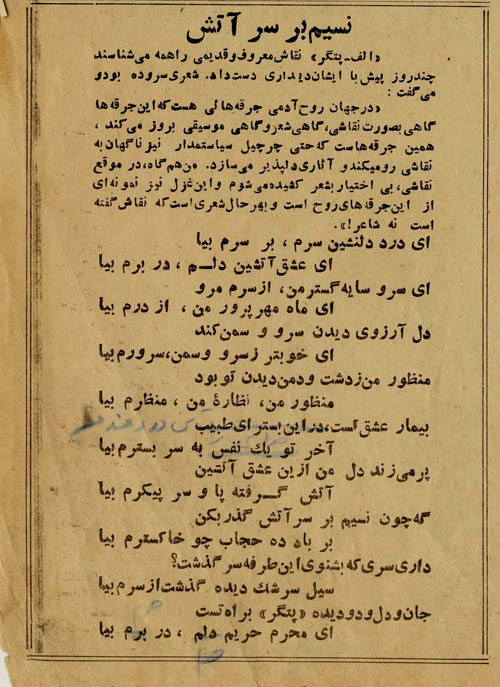 نسیم بر سر آتش
«الف-پتگر» نقاش معروف و قدیمی را همه می‌شناسند
چند روز پیش با ایشان دیداری دست داد. شعری سروده بود و
می‌گفت :
«در جهان روح آدمی جرقه‌هائی هست که این جرقه‌ها
گاهی بصورت نقاشی، گاهی شعر و گاهی موسیقی بروز می‌کند ،
همین جرقه‌هاست که حتی چرچیل سیاستمدار نیز ناگهان به
نقاشی رو میکند و آثاری دلپذیر می‌سازد. من هم گاه، در موقع
نقاشی، بی اختیار بشعر کشیده می‌شوم و این غزل نیز نمونه‌ای
از این جرقه‌های روح است و بهر حال شعری است که نقاش گفته
است نه شاعر!».
ای درد دلنشین سرم ، بر سرم بیا
ای عشق آتشین دلم ، در برم بیا
ای سرو سایه گستر من، از سرم مرو
ای ماه مهر پرور من ، از درم بیا
دل آرزوی دیدن سرو و سمن کند
ای خوبتر ز سرو و سمن، سرورم بیا
منظور من ز دشت و دمن دیدن تو بود
منظور من، نظارهٔ من ، منظرم بیا
بیمار عشق است، در این بستر ای طبیب
آخر تو یك نفس به سر بسترم بیا
پر می‌زند دل من از این عشق آتشین
آتش گــرفته پا و سر پیکرم بیا
گه چون نسیم بر سر آتش گذر بکن
بر باد ده حجاب چو خاکسترم بیا
داری سری که بشنوی این طرفه سر گذشت؟
سیل سر شك دیده گذشت از سرم بیا
جان و دل و دو دیده «پتگر» براه تست
ای محرم حریم دلم ، در برم بیا